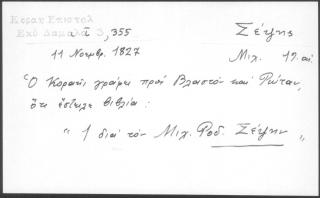 Κοραη Επιστολ
Εκδ Δαμαλά Ι 3, 355
Σέχης
11 Νοεμβρ. 1827
Μιχ. 19 αι.
Ὁ Κοραῆς γράφει πρὸς Βλαστὸν καὶ Ῥώταν,
ὅτι ἔστειλε βιβλία :
" 1 διὰ τὸν Μιχ. Ροδ. Σέχην "